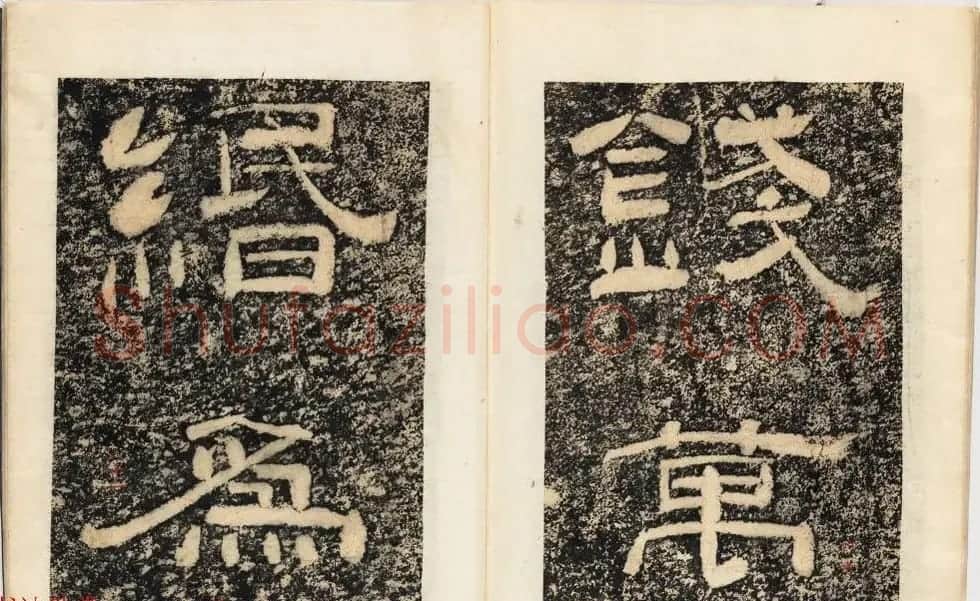 錢萬
緡為
Shufaziliao.COM